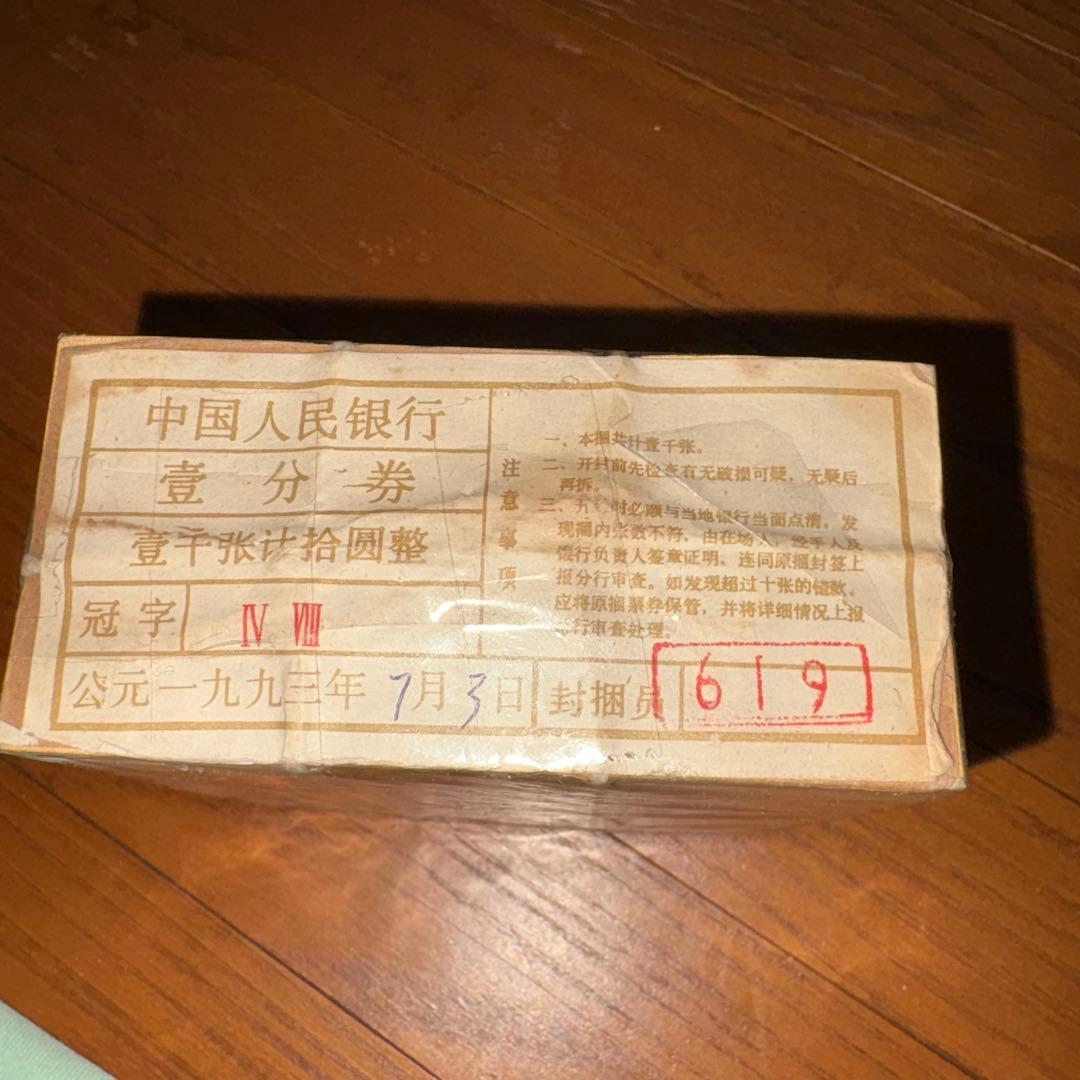 中国人民银行
壹分券
壹千张计拾圆整
冠字 Ⅳ Ⅷ
公元一九九三年7月3日
封捆员 619
注意事项
一、本捆共计壹千张。
二、开封前先检查有无破损可疑，无疑后
再拆。
三、开封时必须与当地银行当面点清，发
现捆内张数不符，由在场人、经手人及
银行负责人签章证明，连同原捆封签上
报分行审查。如发现超过十张的错款，
应将原捆票券保管，并将详细情况上报
行审查处理。